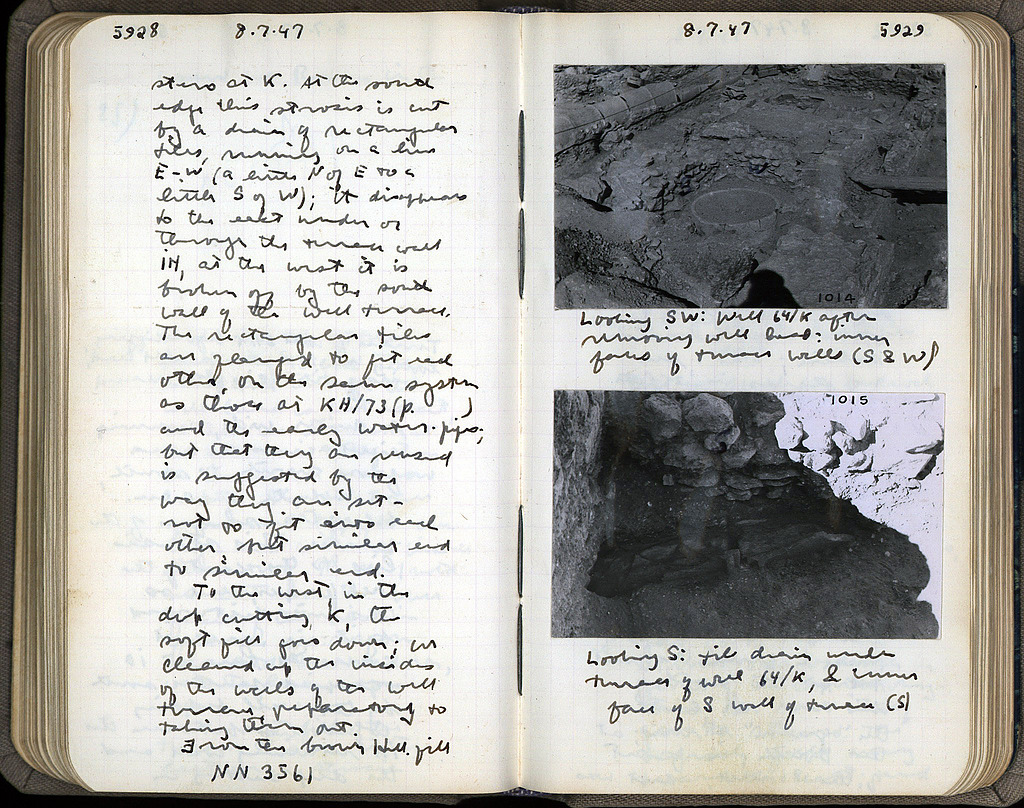 5928 8.7.47
stero at K. At the south
edge this strosis is cut
by a drain of rectangular
tiles, running on a line
E-W (a little N of E to a
little S of W); it disappears
to the east under or
through the terrace wall
IH, at the west it is
broken off by the south
wall of the well terrace.
The rectangular tiles
are flanged to fit each
other, on the same system
as those at KH/73 (p. )
and the early water-pipes;
but that they are reused
is suggested by the
way they are set -
not to fit into each
other, but similar end
to similar end.
To the west, in the
deep cutting, K, the
soft fill goes down; we
cleaned up the insides
of the walls of the well
terrace, preparatory to
taking them out.
From the brown Hell. fill
NN 3561
8.7.47 5929
1014
Looking SW: Well 64/K after
removing well head: inner
faces of terrace walls (S & W)
1015
Looking S: tile drain under
terrace of well 64/K, & inner
face of S wall of terrace (S)